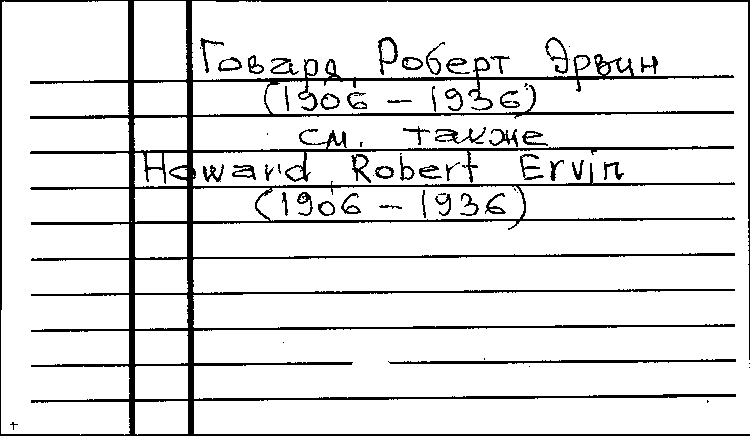 Говард, Роберт Эрвин
(1906 – 1936)
см. также
Howard, Robert Ervin
(1906 – 1936)
+